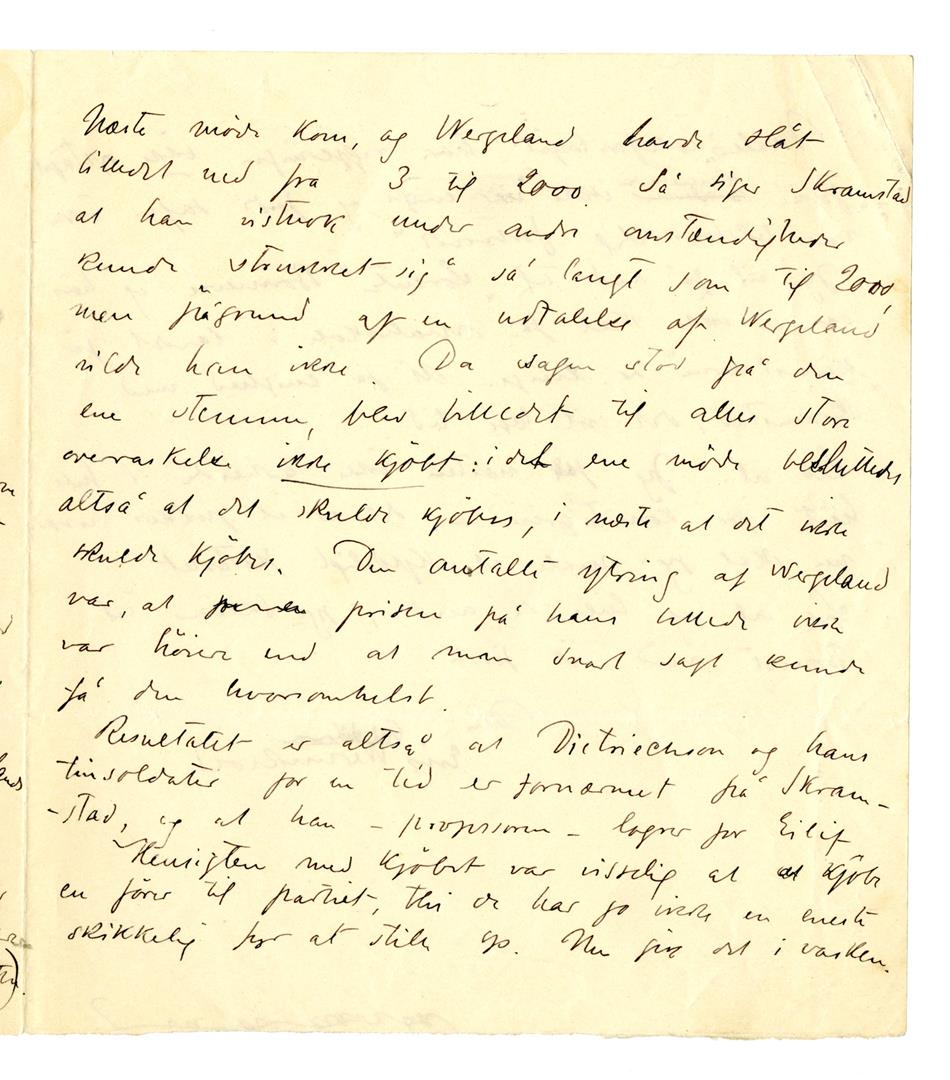 Næste möde kom, og Wergeland havde slåt
billedet ned fra 3 til 2000. Så siger Skramstad
at han vistnok under andre omstændigheder
kunde strukket sig så langt som til 2000,
men pågrund af en udtalelse af Wergeland
vilde han ikke. Da sagen stod på den
ene stemme, blev billedet til alles store
overraskelse ikke kjöbt: i det ene möde besluttedes
altså at det skulde kjöbes, i næste at det ikke
skulde kjöbes. Den omtalte ytring af Wergeland
var, at prisen på hans billede ikke
var höiere end at man snart sagt kunde
få den hvorsomhelst.
Resultatet er altså at Dietriechson og hans
tinsoldater for en tid er fornærmet på Skram-
-stad, og at han - professoren - logrer for Eilif
Hensigten med kjöbet var visselig at kjöbe
en förer til partiet, thi de har jo ikke en eneste
skikkelig fyr at stille op. Nu gik det i vasken.